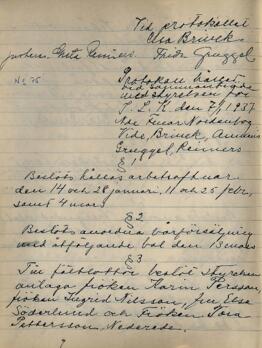 Vid protokollet
Elsa Brivek
Greta Reiniers Frida Gruggel
No 75
Protokoll hållet
vid sammanträde
med styrelsen för
S. L. K. den 7/1 1937
Närv. Fruar Nordenborg
Vide, Brivek,
Gruggel, Reiniers
§ 1
Beslöts hålla arbetsaftnar
den 14 och 28 januari, 11 och 25 febr,
samt 4 mars
§ 2
Beslöts anordna försäljning
med åtföljande bal den 13 mars
§ 3
Till beslöt styrelsen
antaga fröken Karin Persson,
fröken Ingrid Nilsson, fru Elsa
Söderlund och fröken Tora
Pettersson, Nederede.